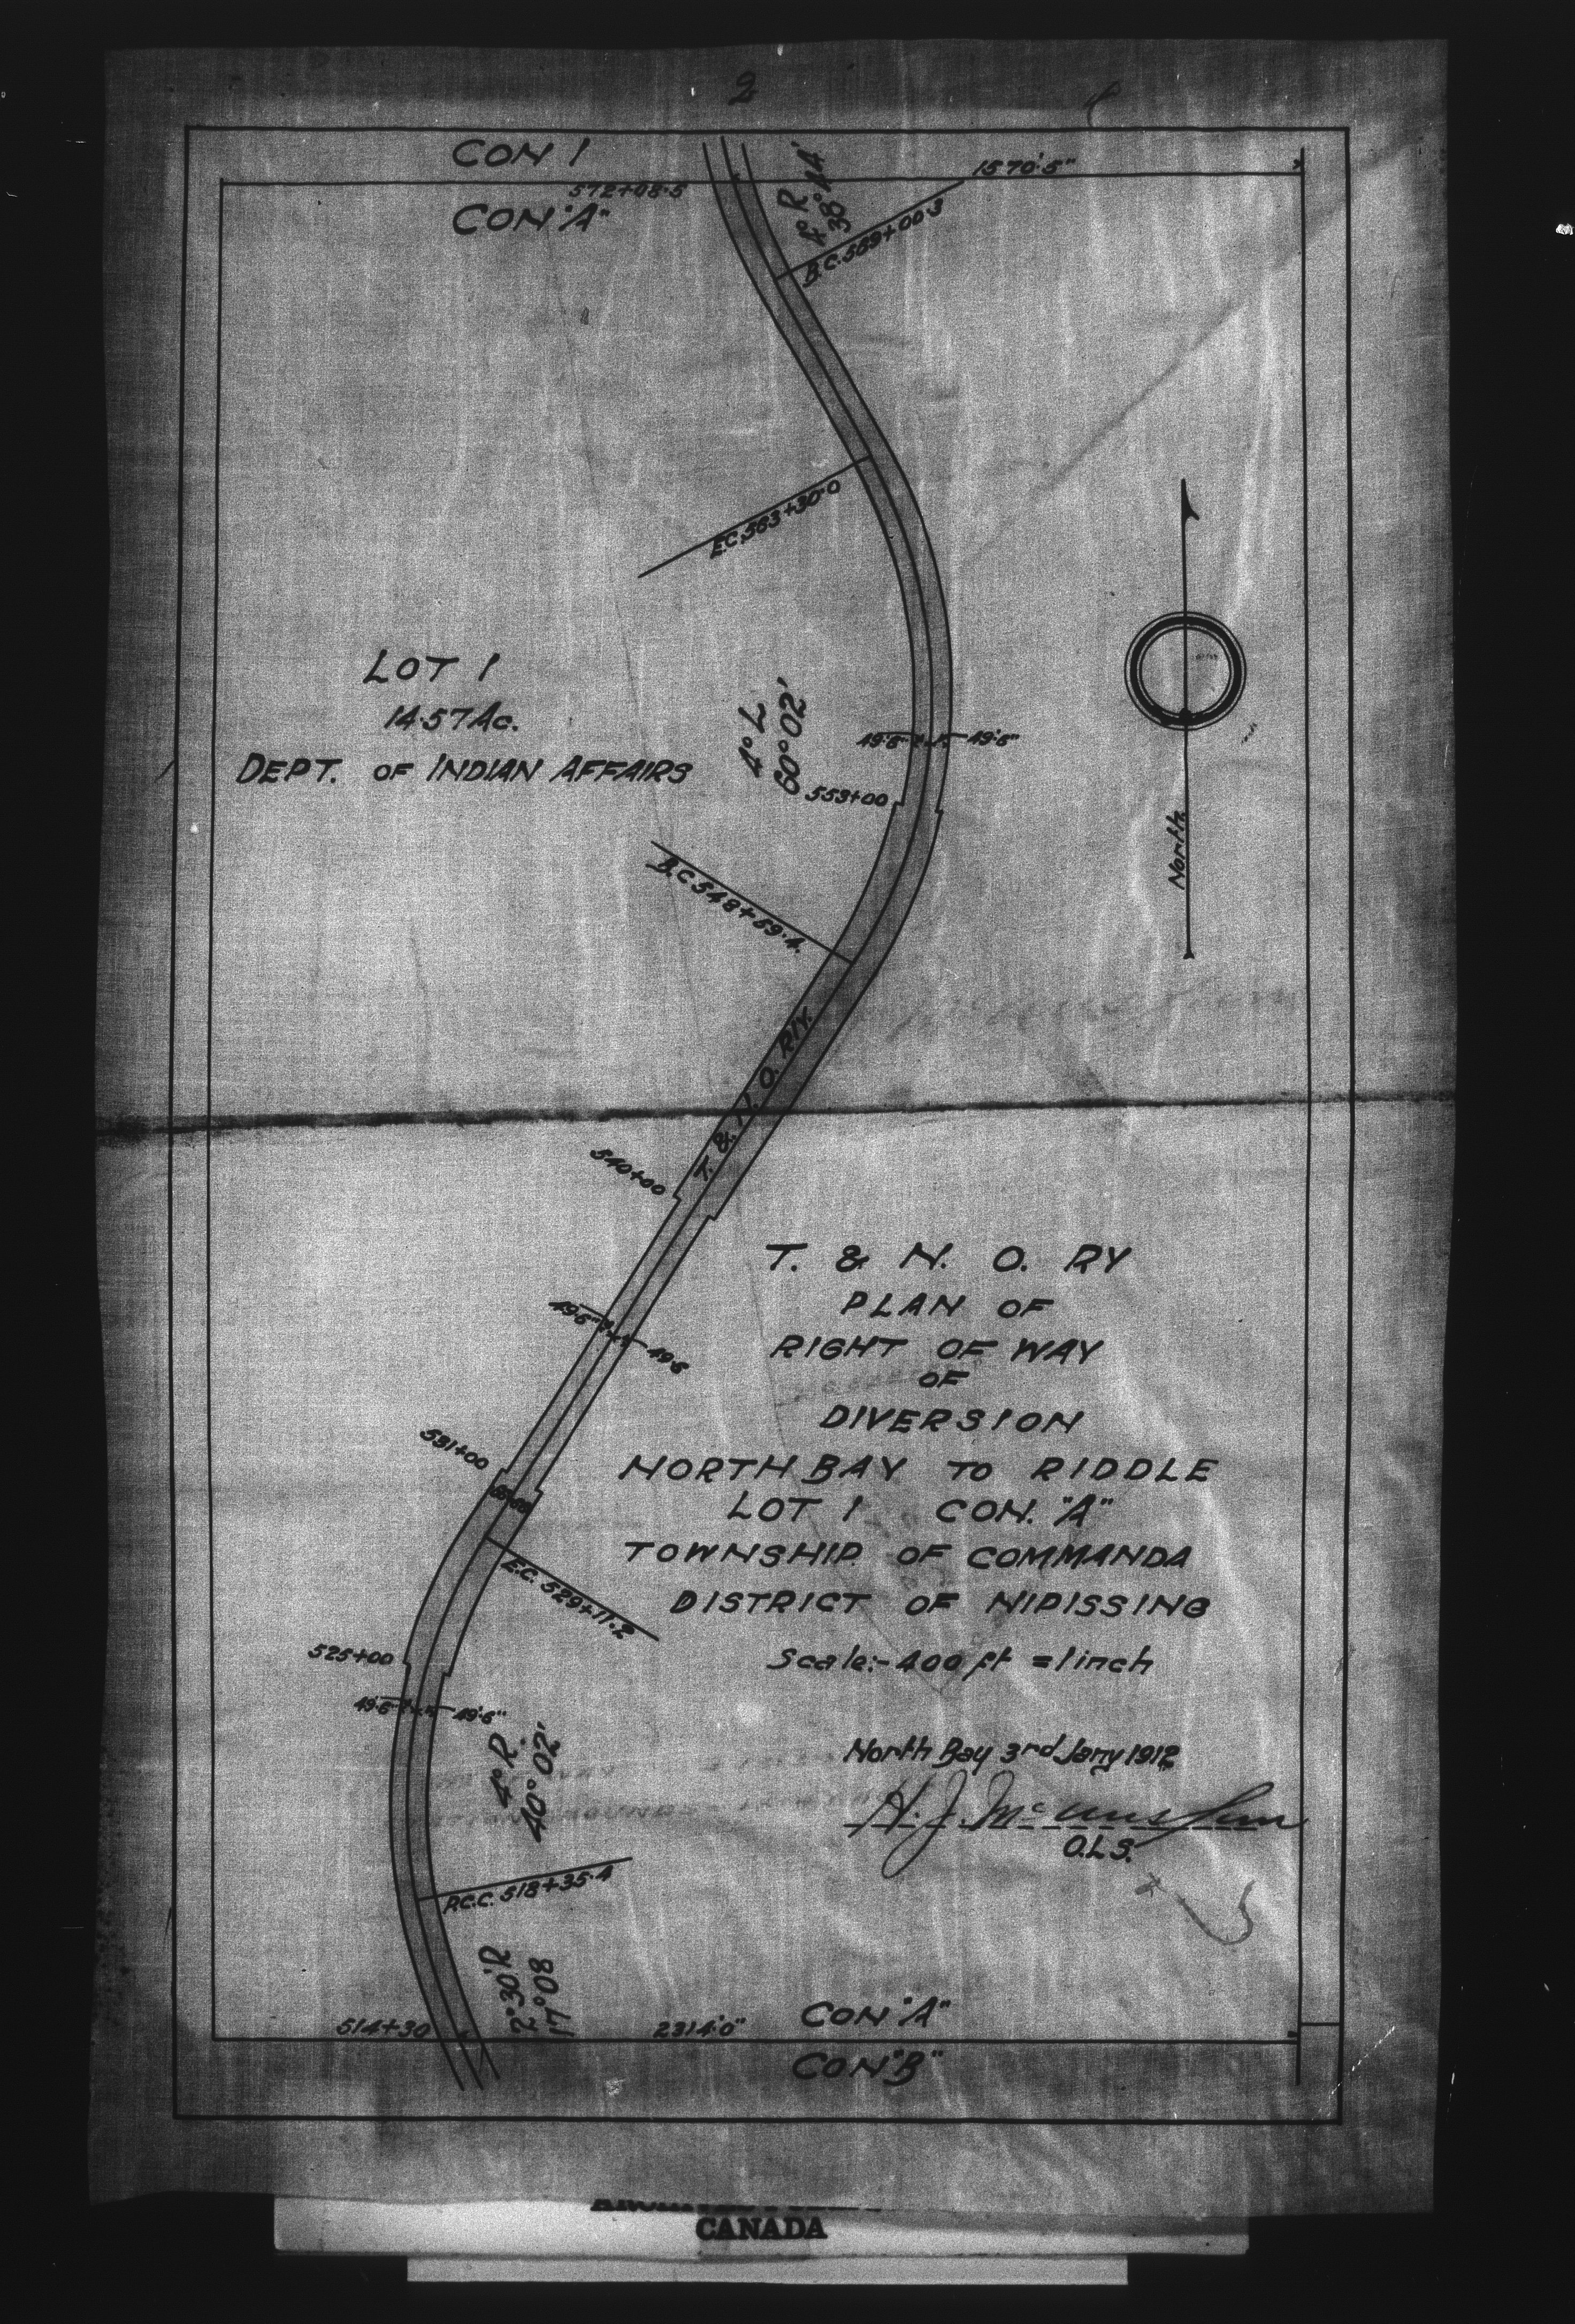 2
CON 1
1570'.5"
572+08.5
CON "A"
4° R
38° 14'
B.C. 569+00.3
E.C. 563+30.0
LOT 1
14.57 Ac.
DEPT. OF INDIAN AFFAIRS
4° L
60° 02'
49'.6" 49'.6"
553+00
North
B.C 548+59.4.
T. & N. O. R'Y.
540+00
T. & N. O. RY
PLAN OF
RIGHT OF WAY
OF
DIVERSION
NORTH BAY TO RIDDLE
LOT 1 CON. "A"
TOWNSHIP OF COMMANDA
DISTRICT OF NIPISSING
Scale:- 400 ft = 1 inch
49'.6" 49'.6
531+00
E.C. 529+11.2
525+00
49'.6" 49'.6"
4° R.
40° 02'
North Bay 3rd Jany 1912
O.L.S.
P.C.C. 518+35.4
2° 30' R
17° 08
514+30
2314'.0"
CON "A"
CON "B"
CANADA